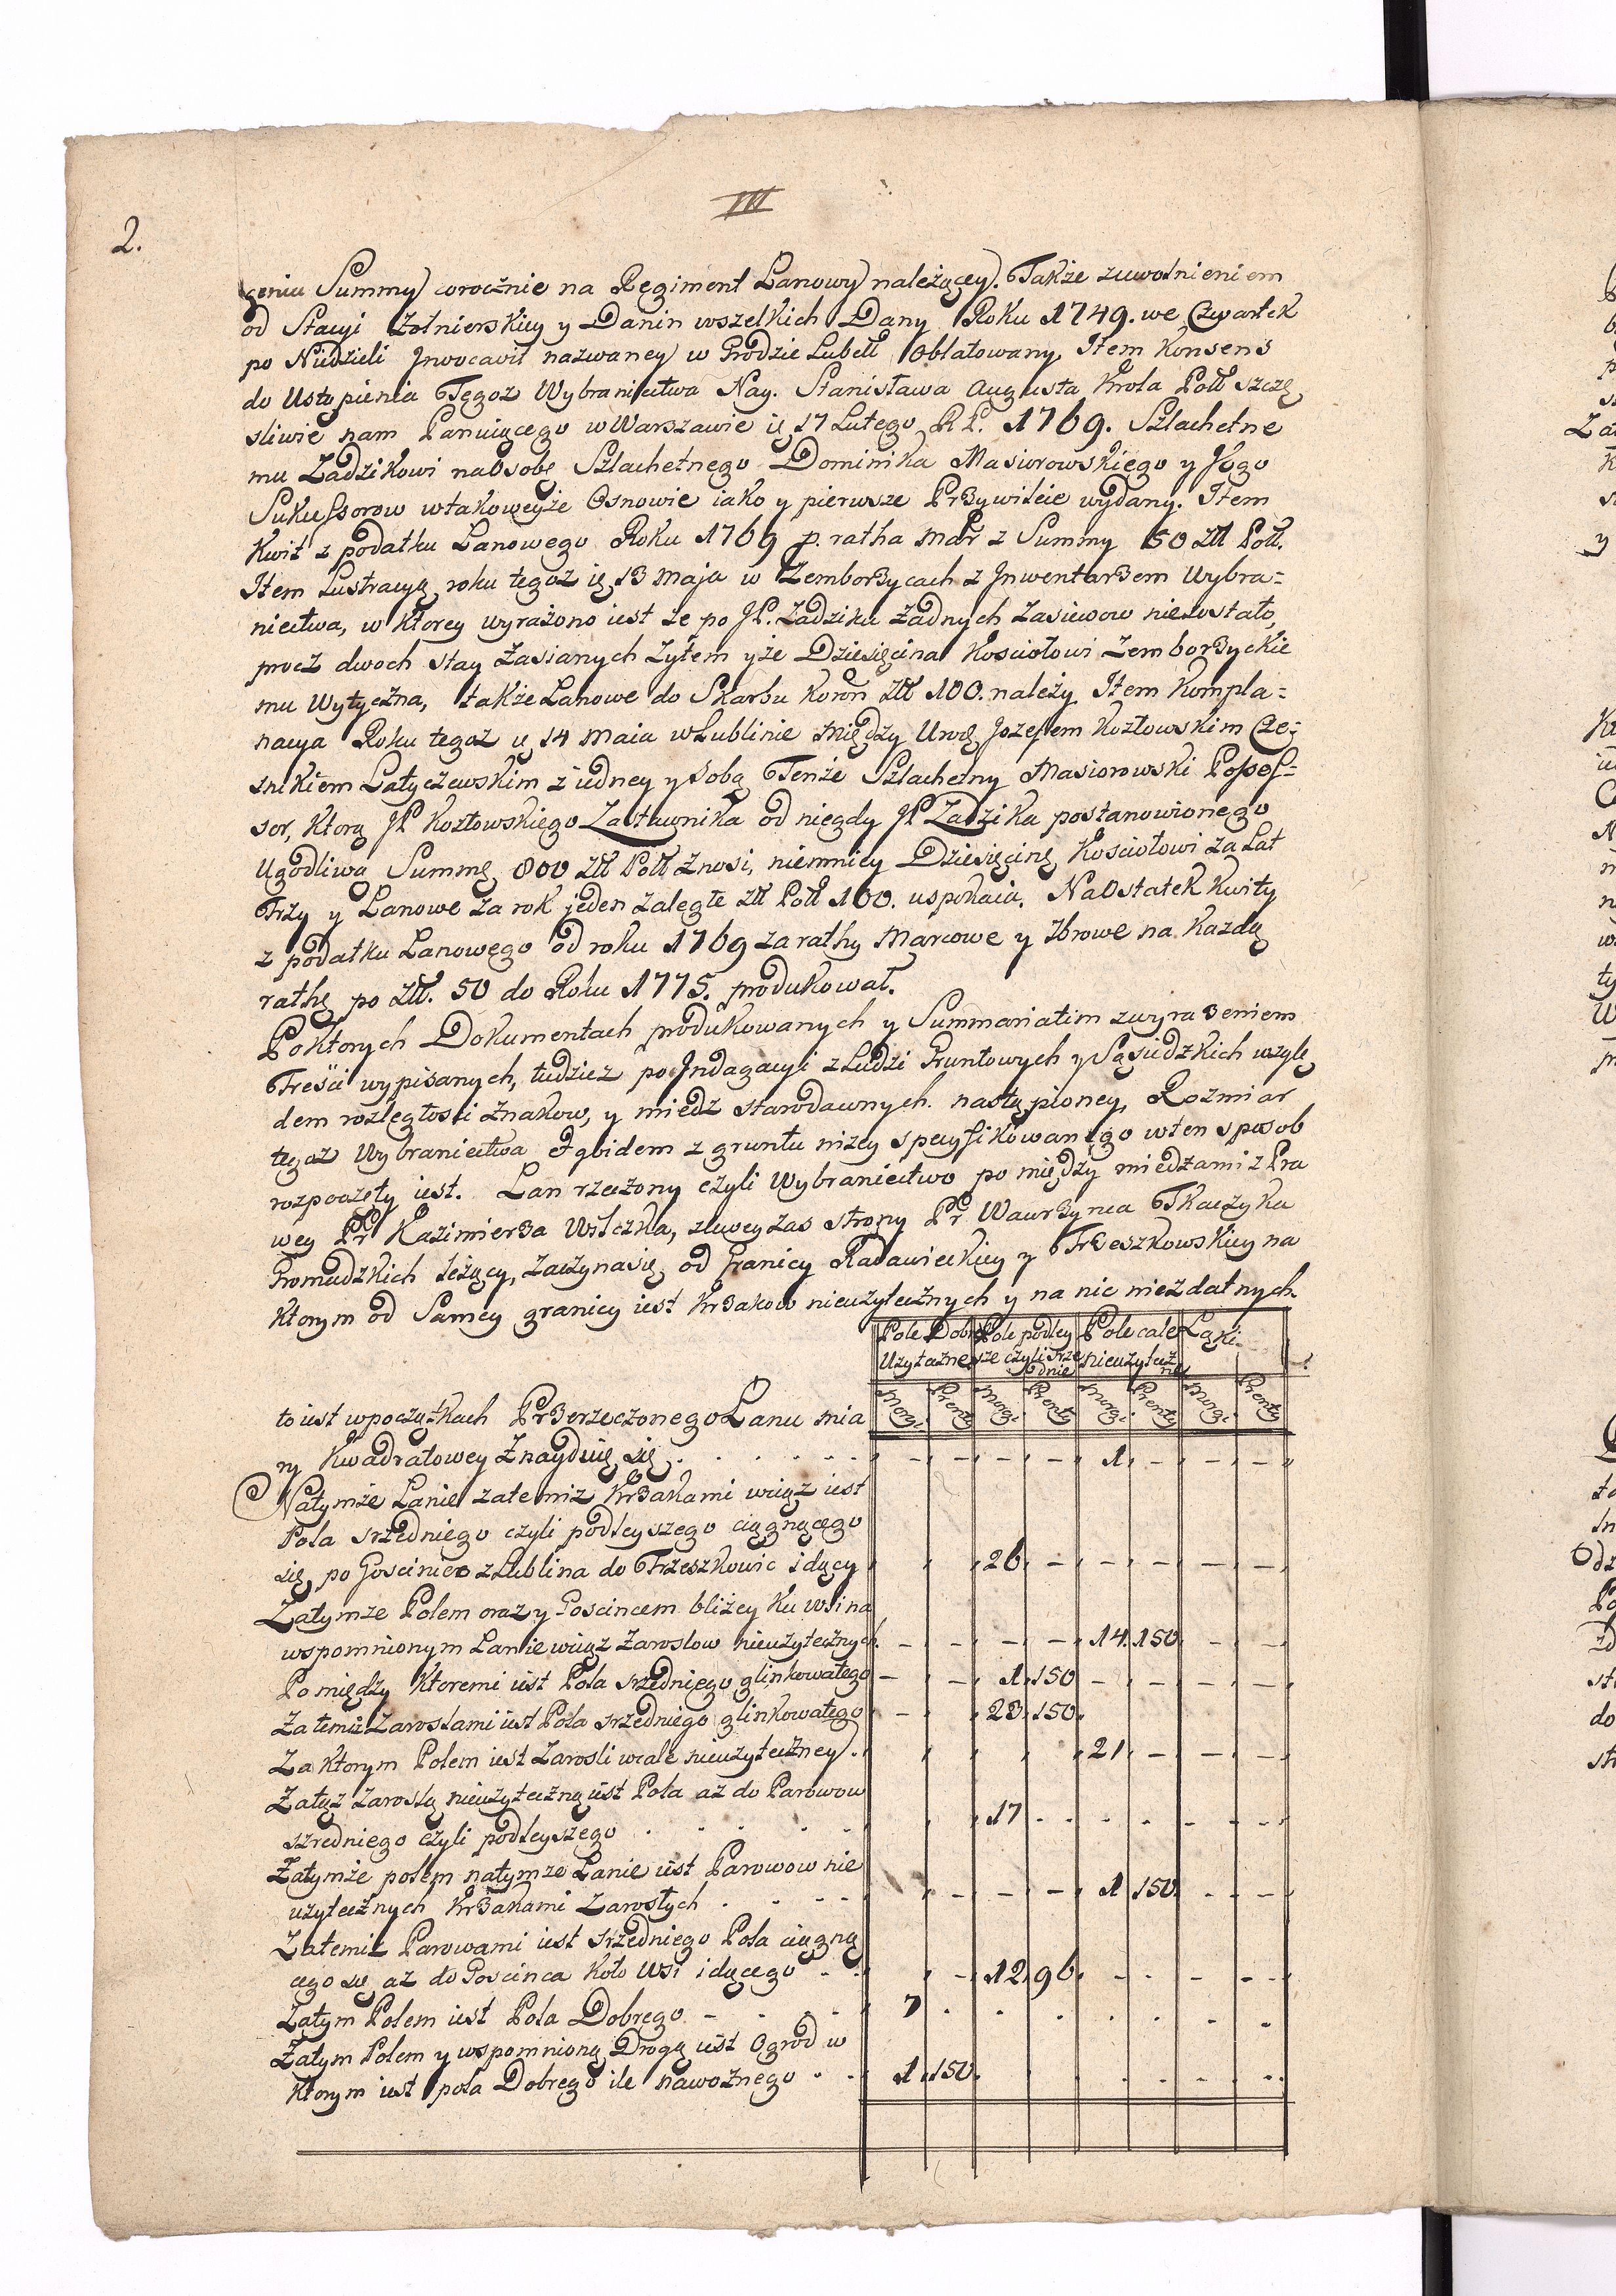 III
2.
ceniu Summy corocznie na Regiment Łanowy należącey. Także zuwolnieniem
od Stacyi Żołnierskiey y Danin wszelkich Dany Roku 1749. we Czwartek
po Niedzieli Jnvocavit nazwaney w Grodzie Lubell Oblatowany, Item Konsens
do Ustąpienia Tegoż Wybraniectwa Nay. Stanisława Augusta Krola Poll szczę
sliwie nam Panuiącego w Warszawie ię 17 Lutego R P. 1769. Szlachetne
mu Zadzikowi na Osobę Szlachetnego Dominika Masiorowskiego y Jego
Sukussorow w takoweyże Osnowie iako y pierwsze Przywileie wydany. Item
Kwit z podatku Łanowego Roku 1769 p. ratha Mar z Summy 50 Zll Poll.
Item Lustracyą roku tegoz ię 13 Maja w Zemborzycach z Jnwentarzem Wybra=
niectwa, w Ktorey wyrażono iest że po JP. Zadziku żadnych Zasiewow niezostało,
procz dwoch stay Zasianych Żytem y że Dziesięcina Kosciołowi Zemborzyckie
mu Wytyczna, także Łanowe do Skarbu Koron Zll 100. należy Item Kompla=
nacya Roku tegoz ię 14 Maia w Lublinie między Urod Jozefem Kozłowskim Cze=
snikiem Latyczewskim z iedney y sobą Tenże Szlachetny Masiorowski Posses=
sor, Ktorą JP Kozłowskiego Zastawnika od niegdy JP Zadzika postanowionego
Ugodliwą Summę 800 Zll Poll Znosi, niemniey Dziesięcinę Kosciołowi za Lat
Trzy y Łanowe za rok jeden zaległe Zll Poll 100. uspokaia. Na Ostatek Kwity
z podatku Łanowego od roku 1769 za rathy Marcowe y 7browe na Kazdą
rathę po Zll. 50 do Roku 1775. produkował.
Po Ktorych Dokumentach produkowanych y Summariatim z wyrażeniem
Tresci wypisanych, tudzież po Jndagacyi z Ludzi Gruntowych y Sąsiedzkich wzglę
dem rozległosci Znakow, y miedz starodawnych nastąpioney, Rozmiar
tegoz Wybraniectwa Jgbidem z gruntu niżey specyfikowanego w ten sposob
rozpoczęty iest. Łan rzeczony czyli Wybraniectwo po między miedzami z Pra
wey Pr Kazimierza Wilczka, z lewey zas strony Pr Wawrzynca Tkaczyka
Gromadzkich leżący, zaczyna się od Granicy Radawieckiey y Trzeszkowskiey na
Ktorym od Samey granicy iest Krzakow nieużytecznych y na nic niezdatnych.
Pole Dobre Uzyteczne Pole podley sze czyli srze dnie Pole cale nieużytecz ne Łąki
Morgi. Pręnty Morgi. Pręnty Morgi. Pręnty Morgi. Pręnty
to iest w początkach Przerzeczonego Łanu mia
ry Kwadratowey Znayduię się . . . . . . . - - - - 1 - - -
Na tymże Łanie za temiz Krzakami wciąz iest
Pola srzedniego czyli podleyszego ciągnącego
się po Gosciniec z Lublina do Trzeszkowic idący 26 - - - - -
Za tymże Polem oraz y Goscincem bliżey Ku Wsi na
wspomnionym Łanie wciąz Zaroslow nieużytecznych. - - - - 14. 150 - -
Po między Ktoremi iest Pola srzedniego glinkowatego - - 1 150 - - - -
Za temiż Zaroslami iest Pola srzedniego glinkowatego - 23. 150
Za Ktorym Polem iest Zarosli wcale nieużyteczney. 21 - - -
Za tąż Zaroslą nieużyteczną iest Pola aż do Parowow
szredniego czyli podleyszego . . . . . 17 . . . . - - -
Za tymże polem na tymze Łanie iest Parowow nie
użytecznych Krzakami Zarosłych . . . - - - - - 1 150 . - -
Za temiż Parowami iest srzedniego Pola ciągną
cego się aż do Goscinca Koło Wsi idącego - - - 12 96. - - - -
Za tym Polem iest Pola Dobrego - . . . 7 . . . . . . .
Za tym Polem y wspomnioną Drogą iest Ogrod w
Ktorym iest pola Dobrego ile nawoznego . . 1 150. . . . . .